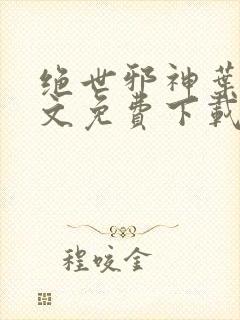 绝世邪神葉
文免费下載
程咬金